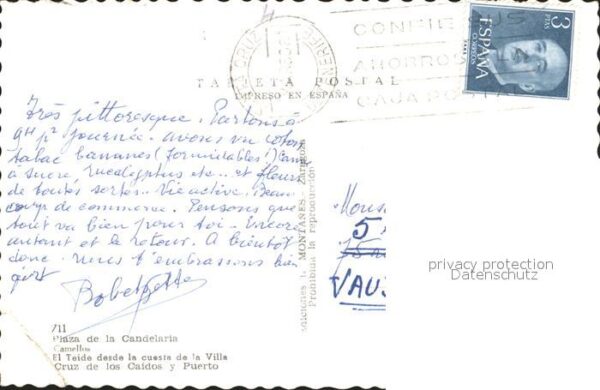 CRUZ
TENERIFE
CONFIE SUS
AHORROS
CAJA POSTA
3
PTA
CORREOS
ESPAÑA
TARJETA POSTAL
IMPRESO EN ESPAÑA
Très pittoresque. Partons à
9H pr journée. avons vu coton
tabac bananes (formidables!) Canne
à sucre, eucalyptus etc.. et fleurs
de toutes sortes. Vie active. Beau-
coup de commerce. Pensons que
tout va bien pour toi. Encore
autant et le retour. A bientôt
donc. nous t'embrassons bien
fort
MONTAÑES - Zaragoza
Prohibida la reproducción
Mous
5
VAU
privacy protection
Datenschutz
711
Plaza de la Candelaria
Camellos
El Teide desde la cuesta de la Villa
Cruz de los Caidos y Puerto